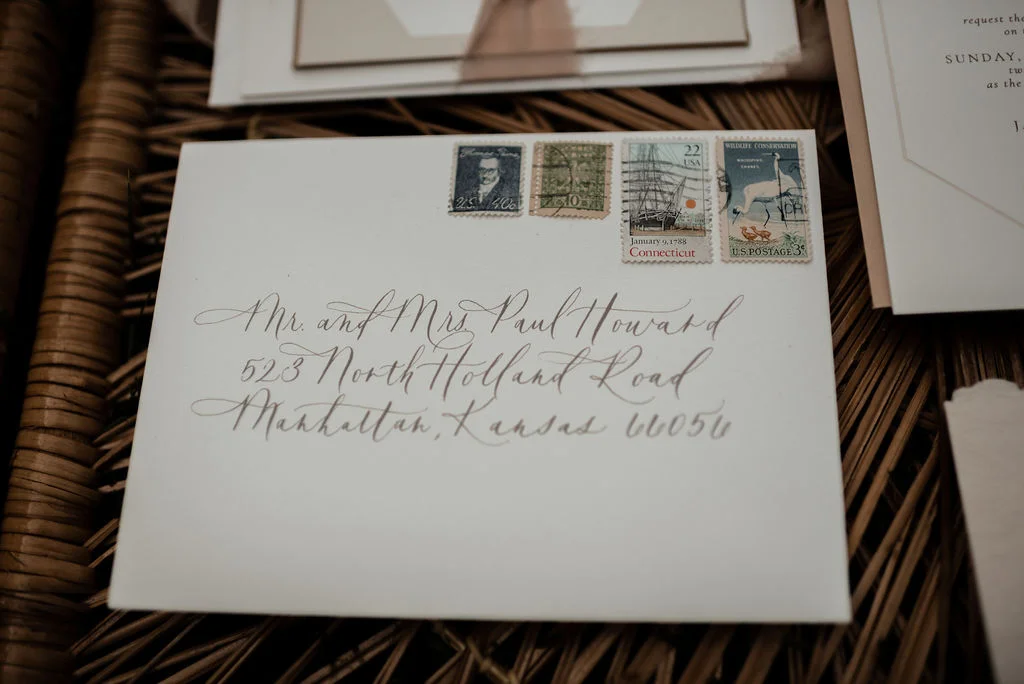 request the
on
SUNDAY,
tw
as the
J
U.S. 40c
10
22
USA
January 9, 1788
Connecticut
WILDLIFE CONSERVATION
WHOOPING
CRANES
U.S. POSTAGE 3¢
Mr. and Mrs. Paul Howard
523 North Holland Road
Manhattan, Kansas 66056